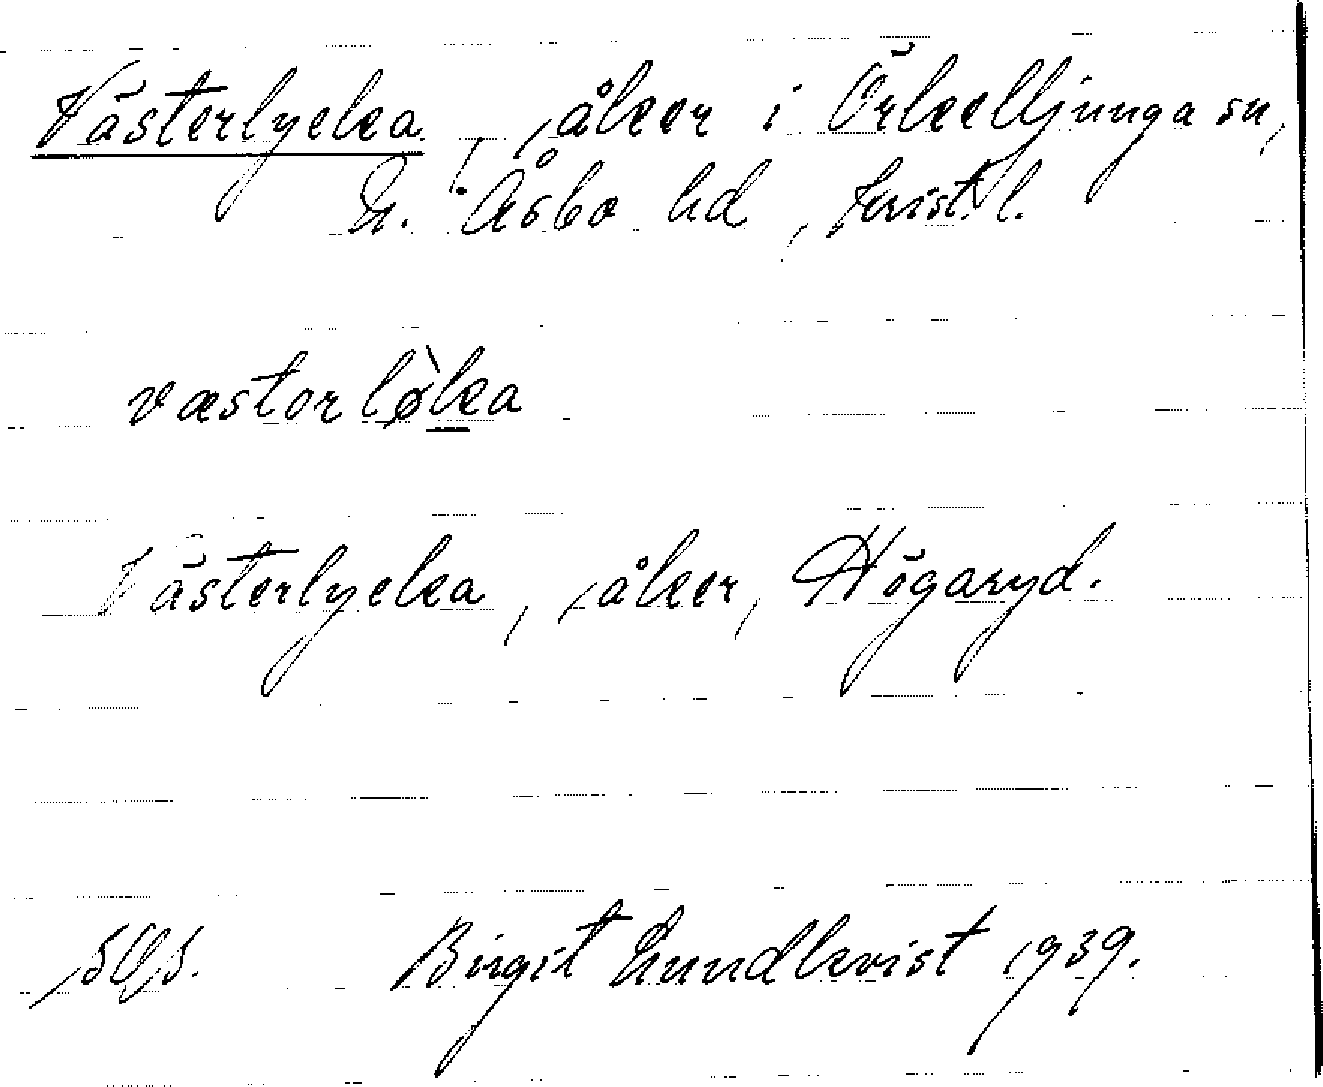 Västerlycka, åker i Örkelljunga sn,
N. Åsbo hd, krist. l.
væstorlø̀ka
Västerlycka, åker, Högaryd.
Birgit Lundkvist 1939.